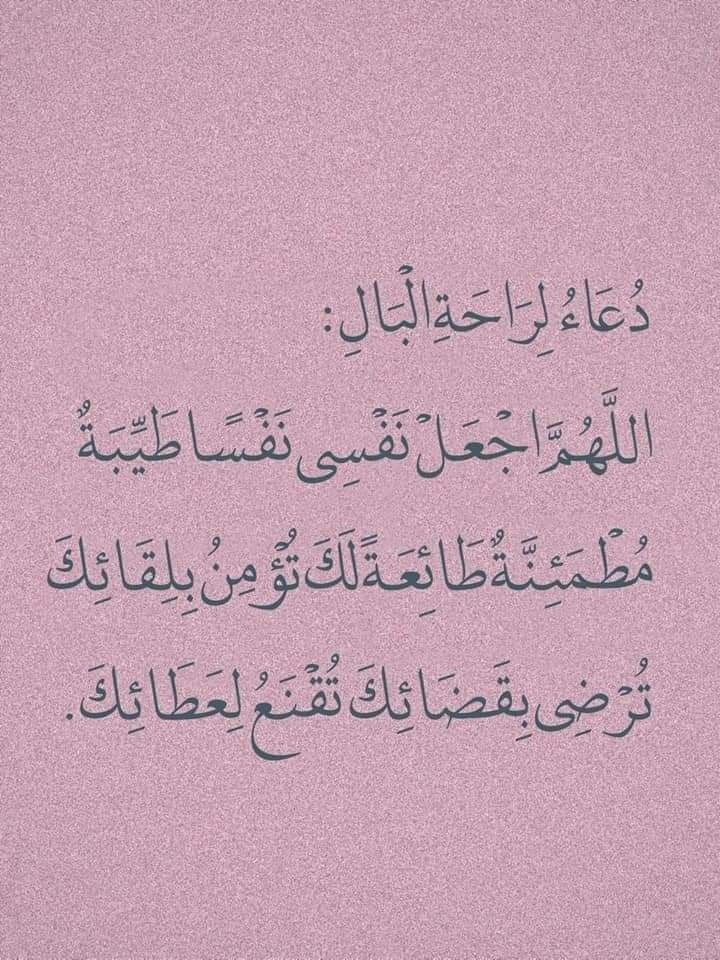 دُعَاءُ لِرَاحَةِ الْبَالِ:
اللَّهُمَّ اجْعَلْ نَفْسِي نَفْسًا طَيِّبَةٌ
مُطْمَئِنَّةٌ طَائِعَةً لَكَ تُؤْمِنُ بِلِقَائِكَ
تُرْضِي بِقَضَائِكَ تُقْنَعُ لِعَطَائِكَ.